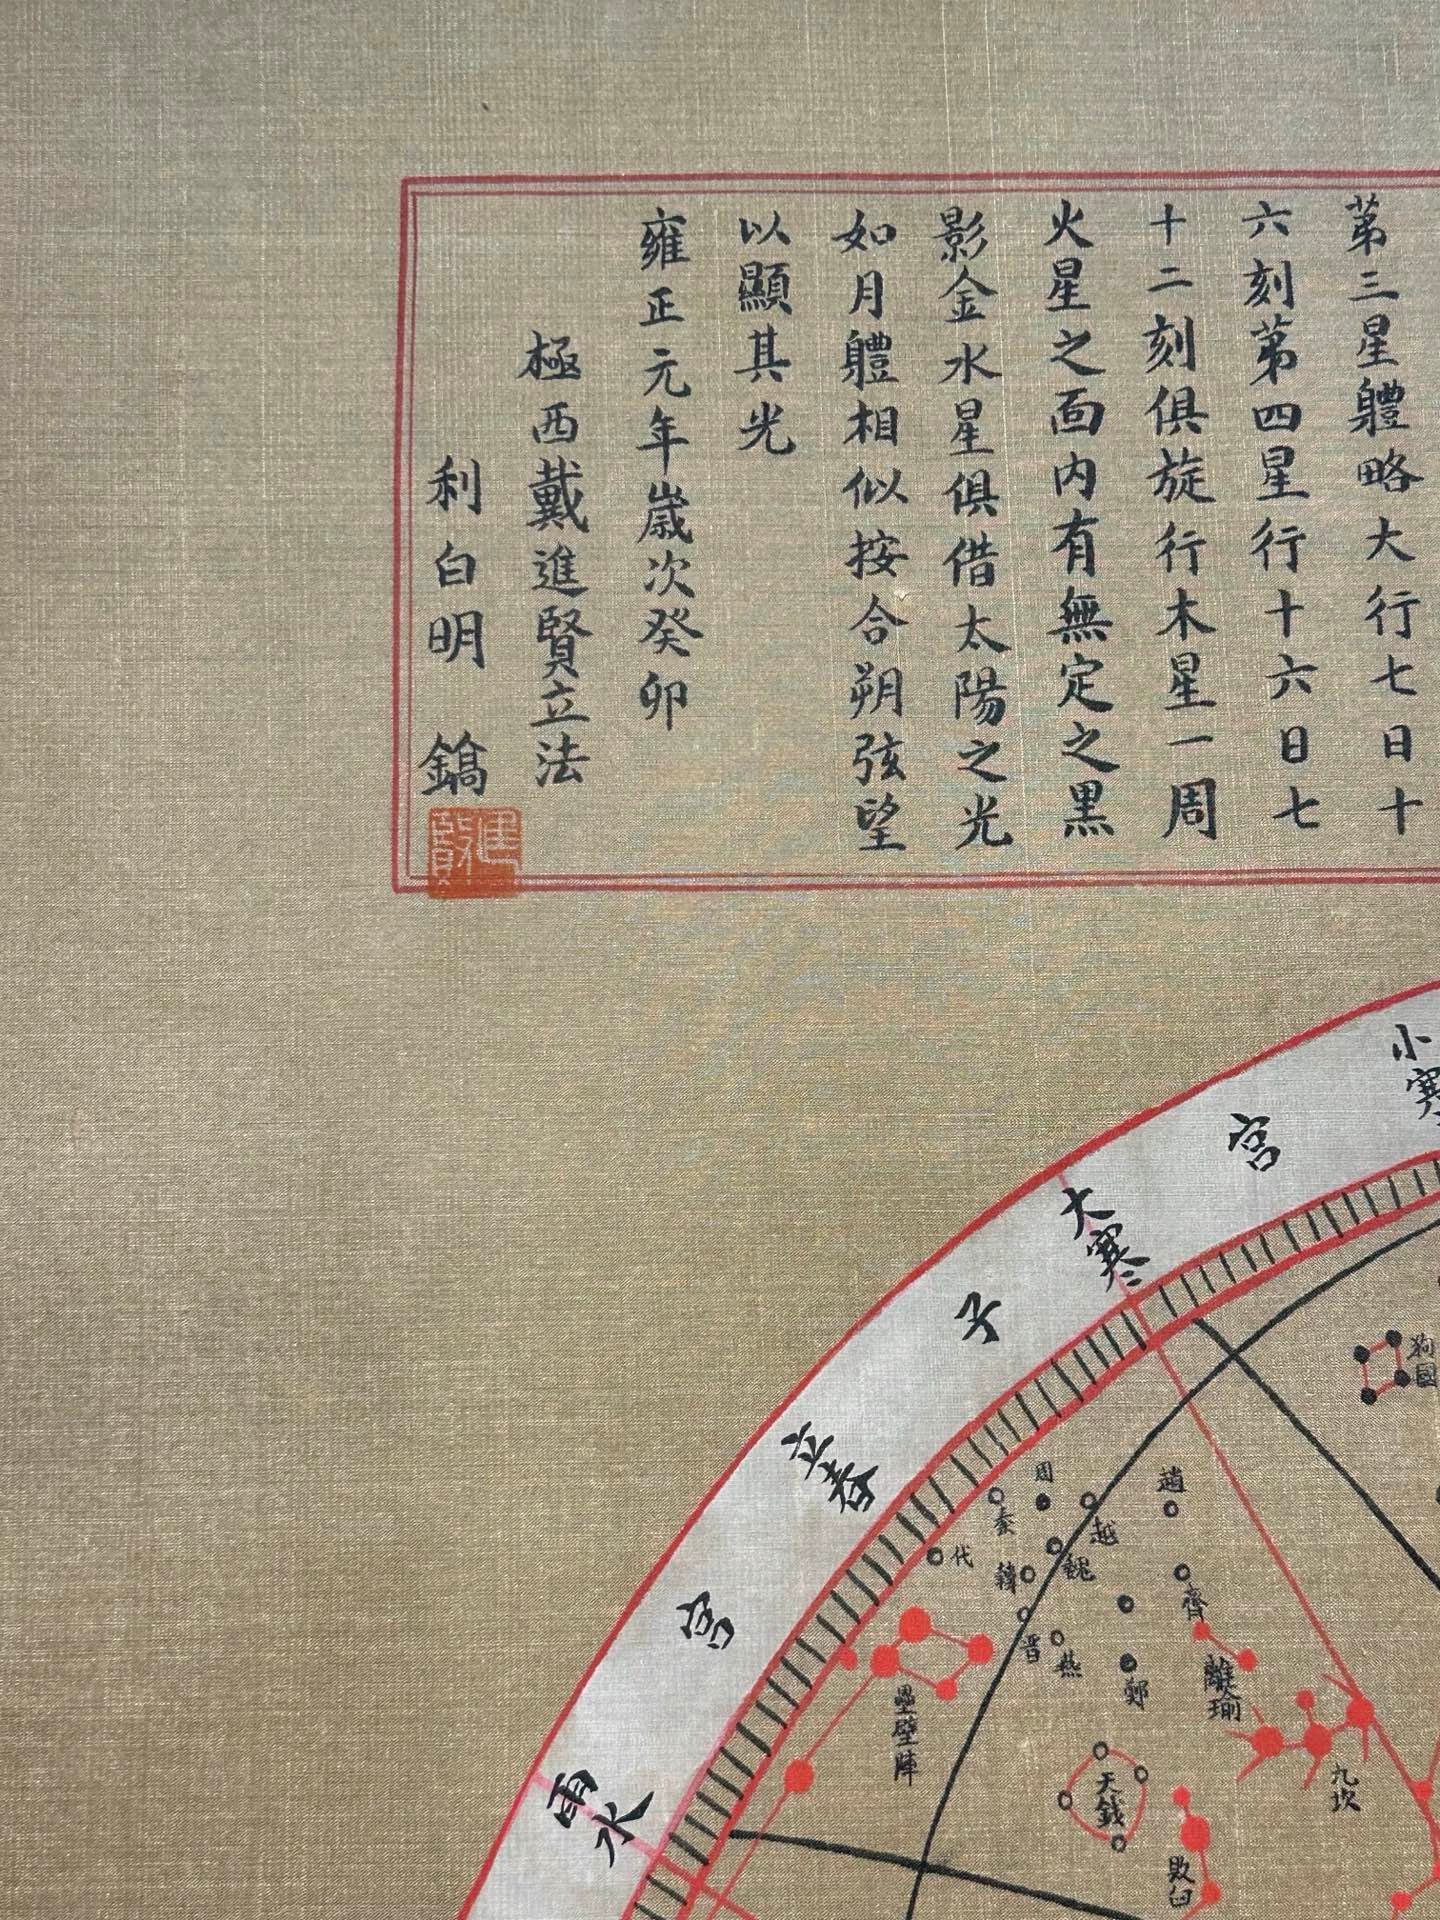 第三星軆略大行七日十
六刻第四星行十六日七
十二刻俱旋行木星一周
火星之面内有無定之黒
影金水星俱借太陽之光
如月軆相似按合朔弦望
以顯其光
雍正元年歲次癸卯
極西戴進賢立法
利白明 鐫
進賢
小寒
宮
大寒
子
立春
宮
雨水
狗國
周
秦
越
趙
代
魏
韓
齊
晋
燕
鄭
離瑜
壘壁陣
天錢
九坎
敗臼